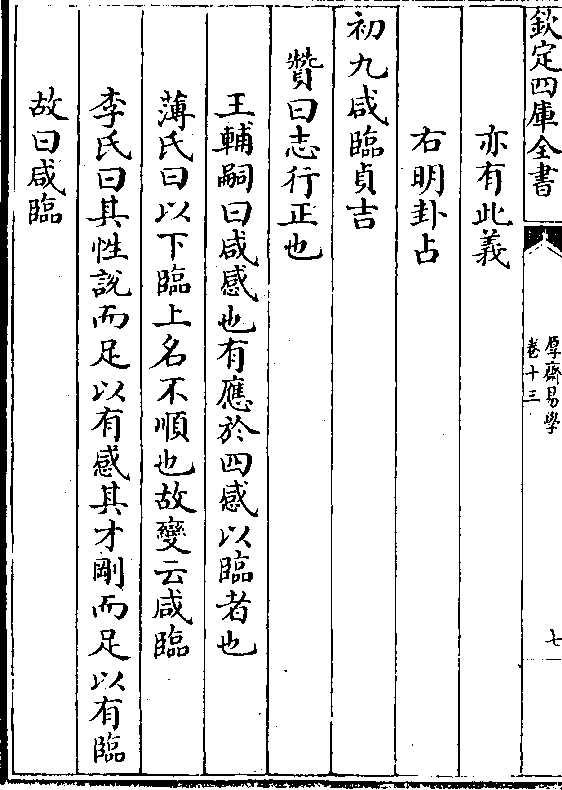 欽定四庫全書
厚齋易學
卷十三
七
亦有此義
右明卦占
初九咸臨貞吉
贊曰志行正也
王輔嗣曰咸感也有應於四感以臨者也
薄氏曰以下臨上名不順也故變云咸臨
李氏曰其性說而足以有感其才剛而足以有臨
故曰咸臨